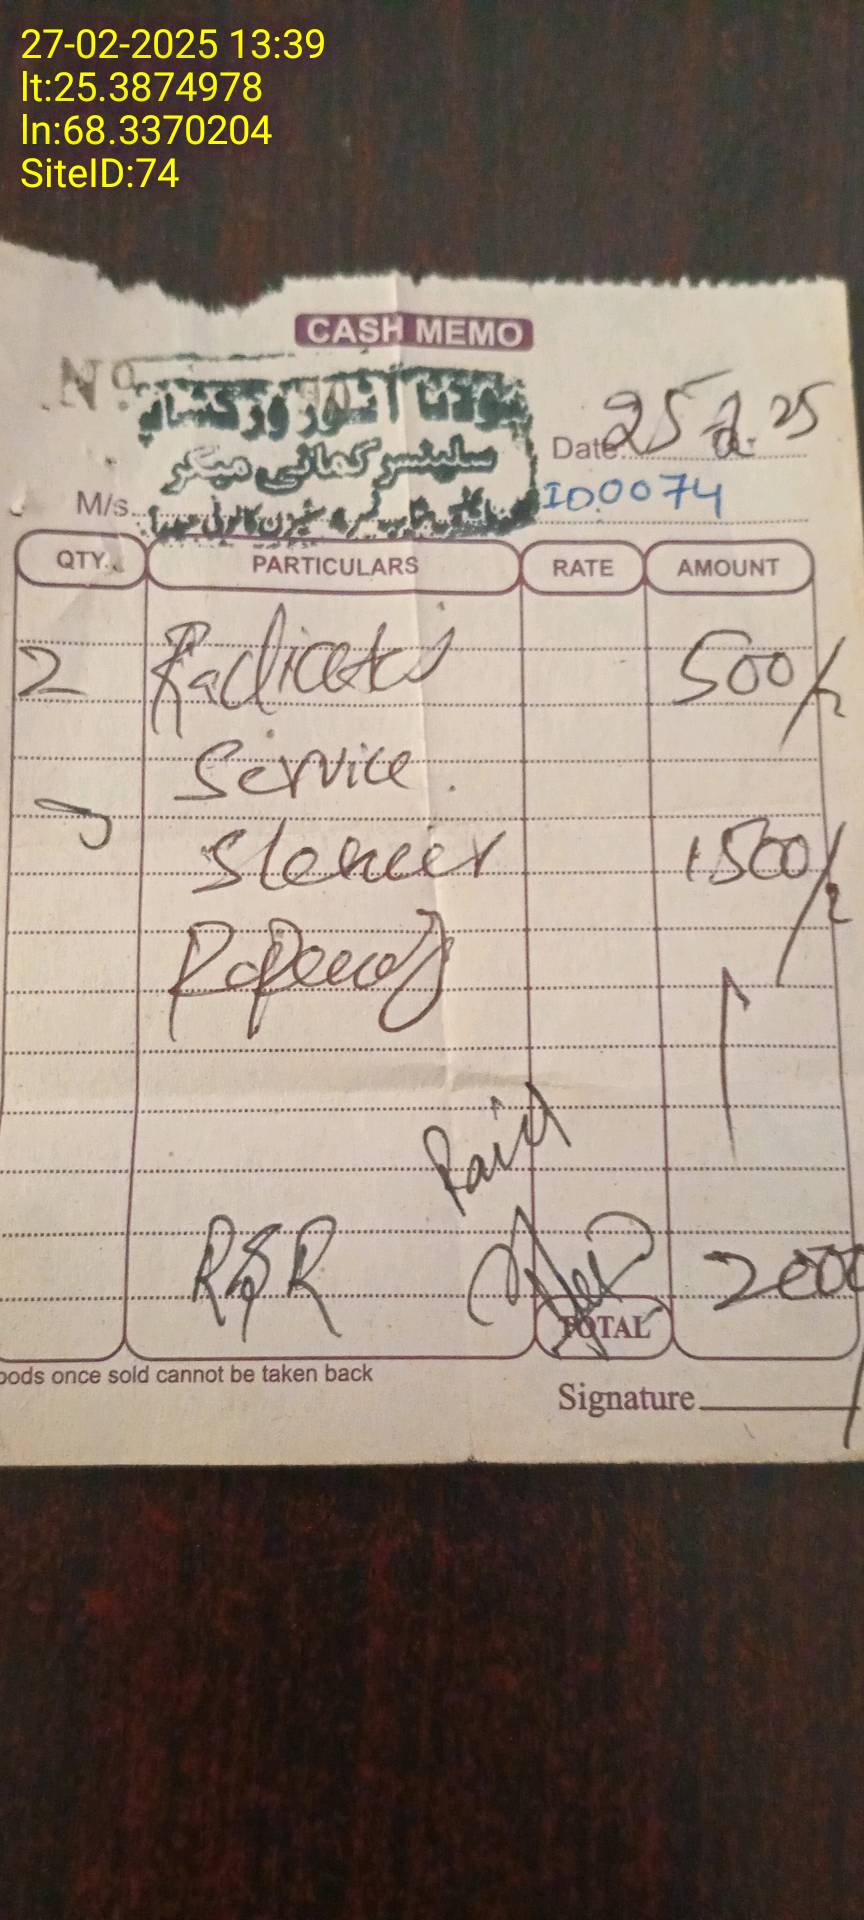 27-02-2025 13:39
lt:25.3874978
ln:68.3370204
SiteID:74
CASH MEMO
No.
مولانا آٹوز ورکشاپ
سلینسر کمانی میکر
Date: 25 2. 25
M/s. ID.0074
QTY. PARTICULARS RATE AMOUNT
2 500/
Service.
1500/
Paid
R&R 2000
TOTAL
oods once sold cannot be taken back
Signature